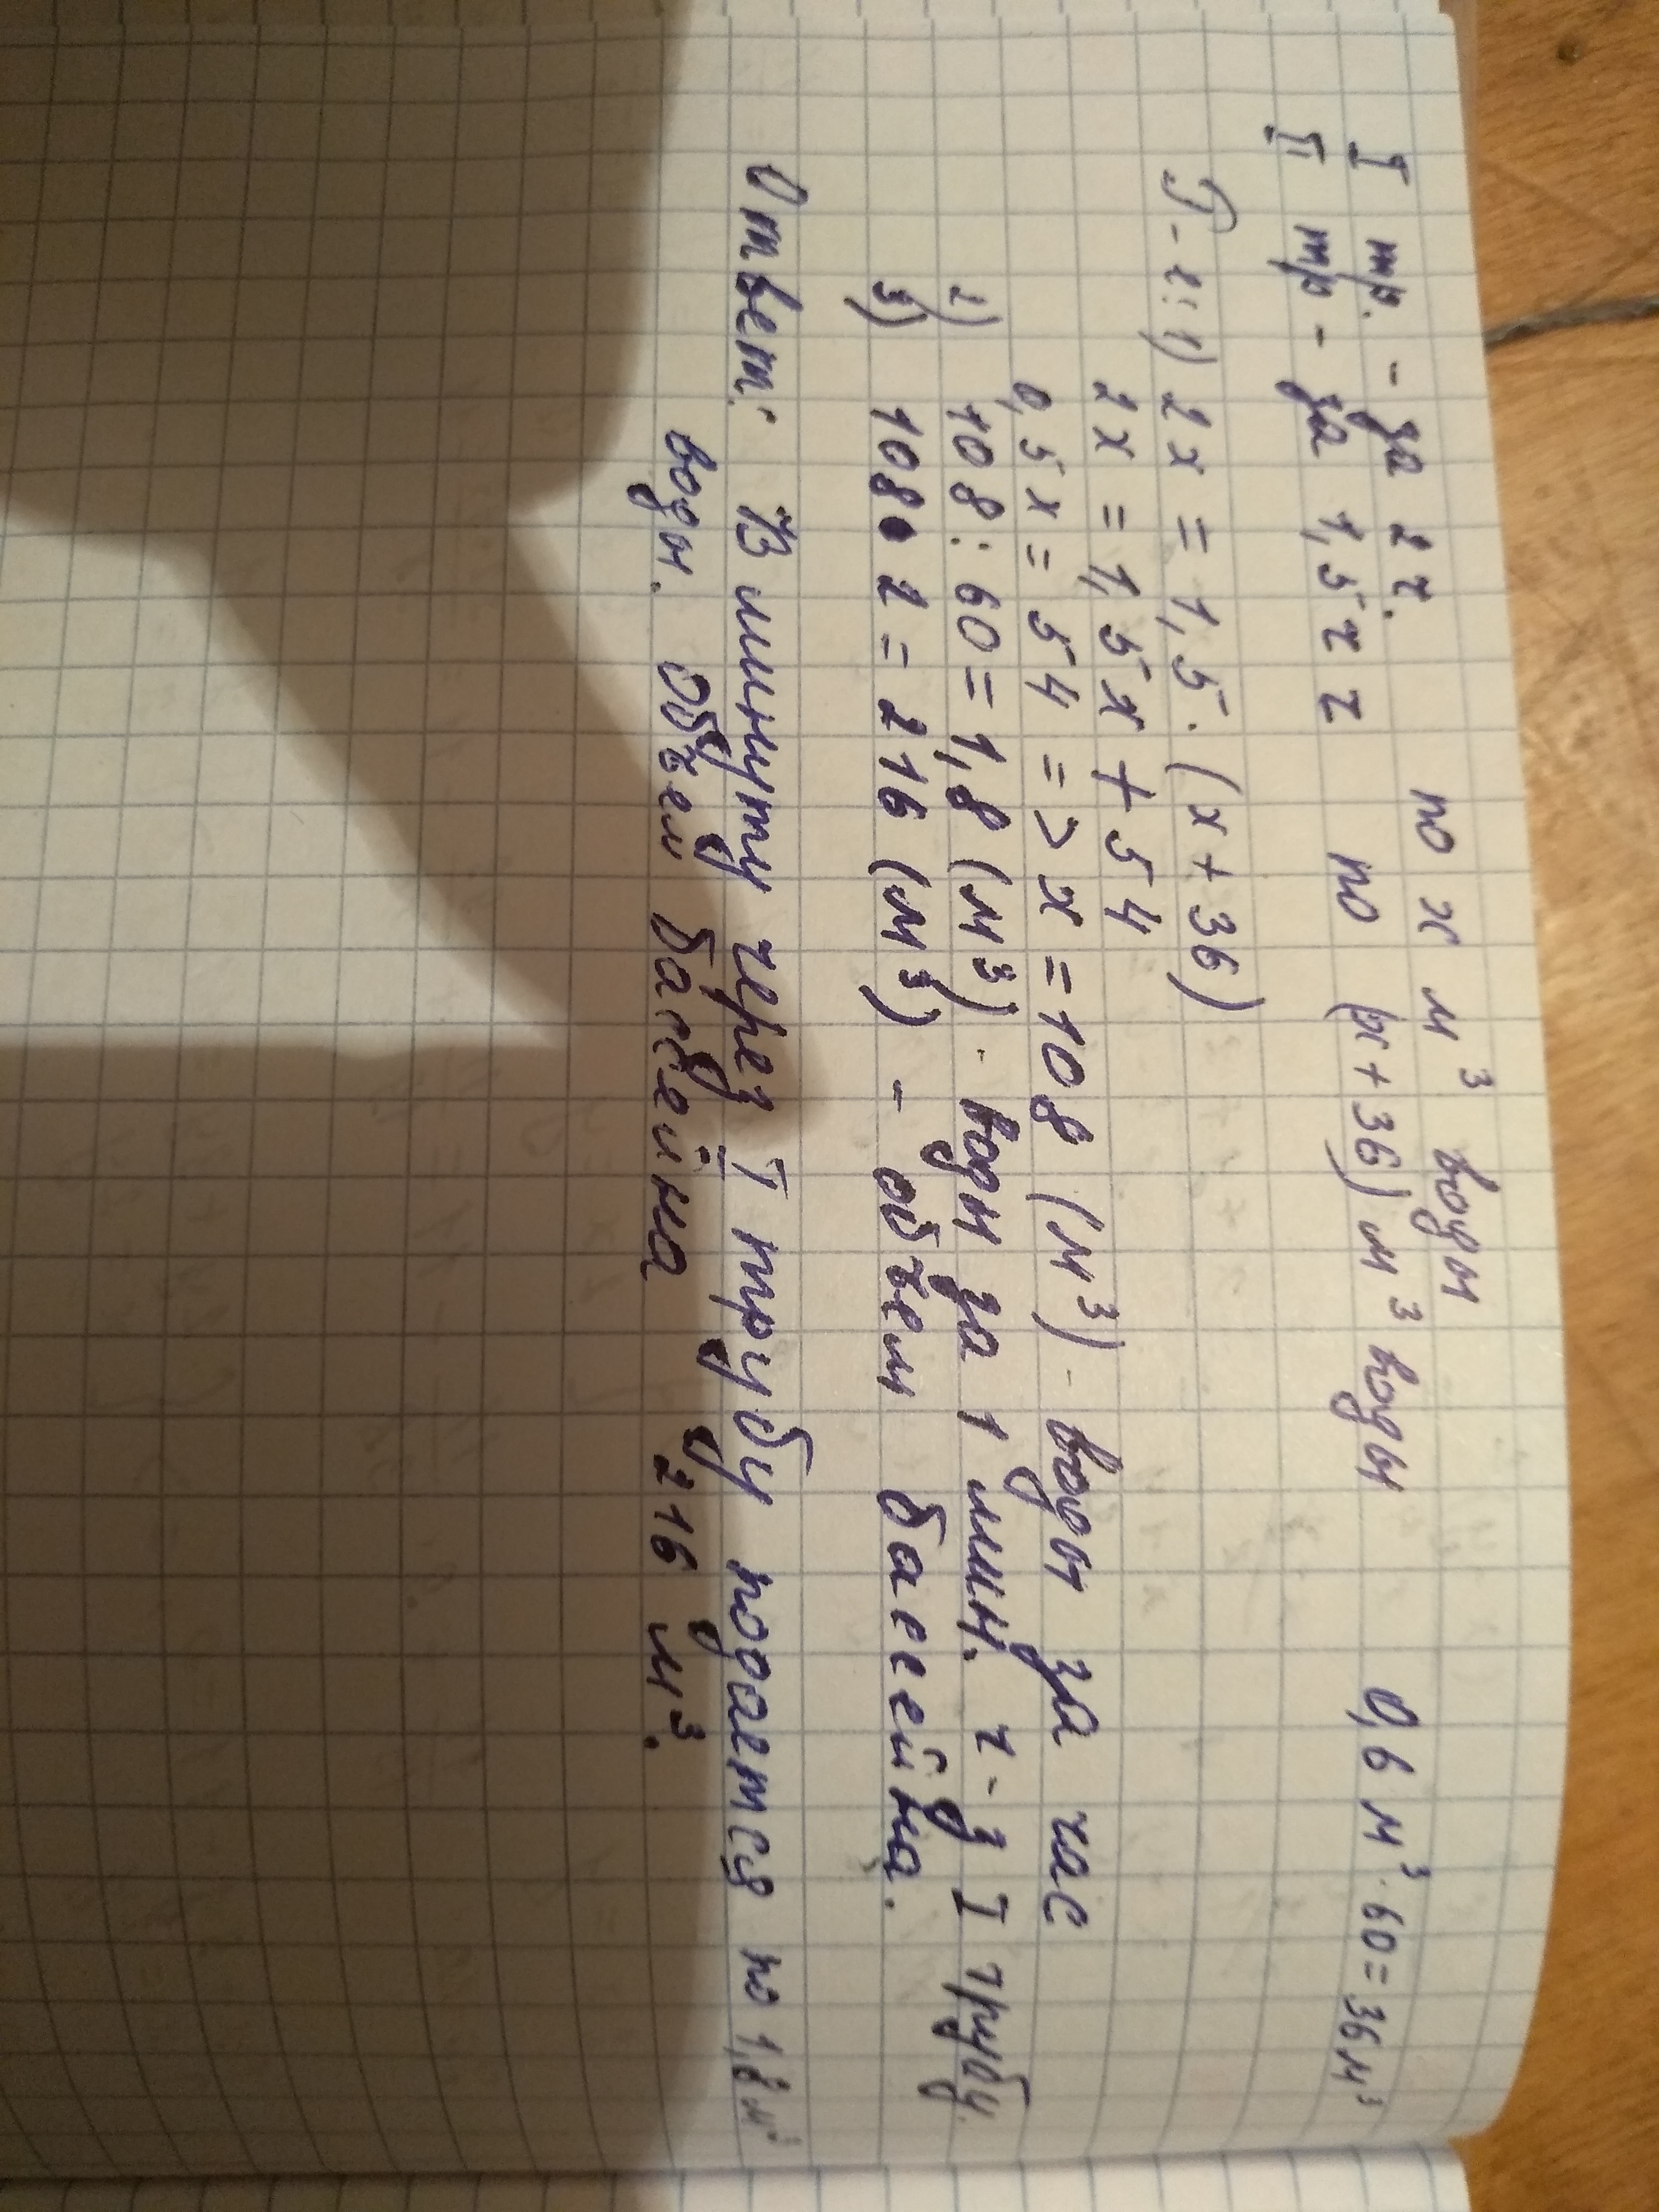 I тр. - за 2 ч. по x м³ воды
II тр - за 1,5 ч по (x + 36) м³ воды 0,6 м³ · 60 = 36 м³
Р-е: 1) 2x = 1,5 · (x + 36)
2x = 1,5x + 54
0,5x = 54 => x = 108 (м³) - воды за час
2) 108 : 60 = 1,8 (м³) - воды за 1 мин. ч-з I трубу.
3) 108 · 2 = 216 (м³) - объем бассейна.
Ответ: В минуту через I трубу подается по 1,8 м³
воды. Объем бассейна 216 м³.